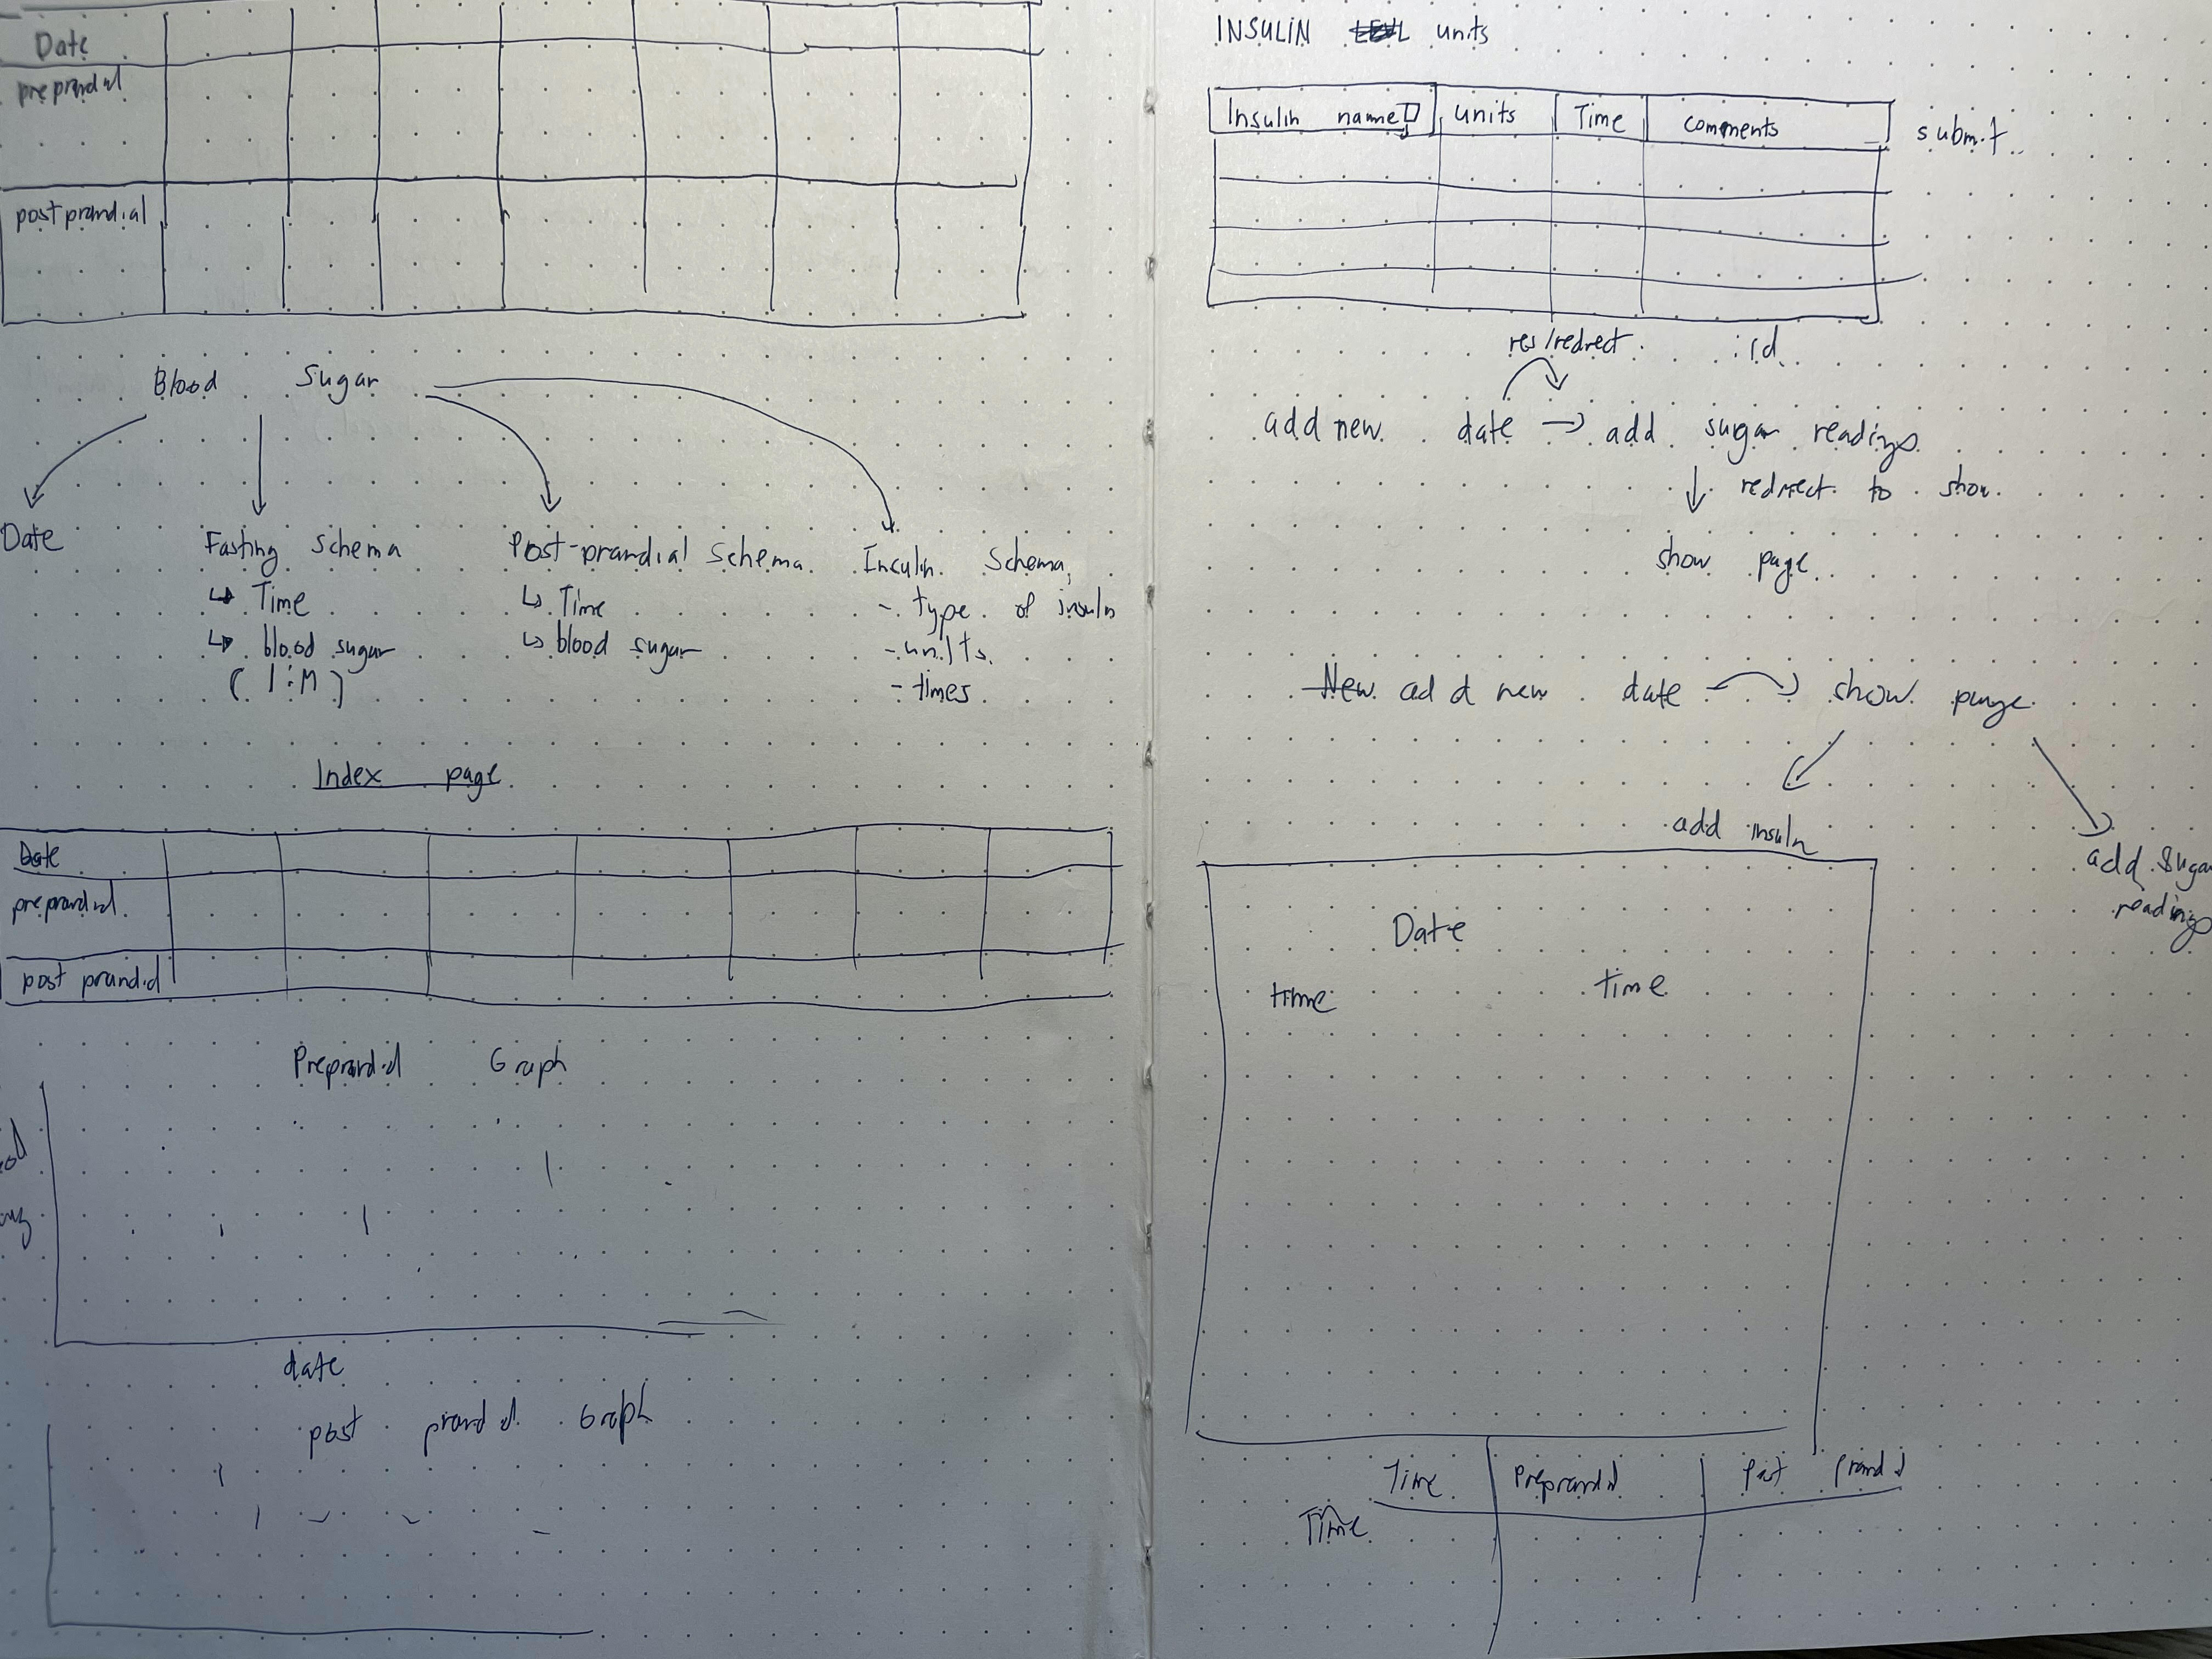 Date
preprandial
postprandial
Blood Sugar
Date
Fasting Schema
↳ Time
↳ blood sugar
( 1:M )
Post-prandial Schema
↳ Time
↳ blood sugar
Insulin Schema
- type of insulin
- units
- times
Index page
Date
preprandial
post prandial
Preprandial Graph
date
post prandial Graph
INSULIN units
Insulin name
units
Time
comments
submit
res/redirect
:id
add new date → add sugar readings
↓ redirect to show
show page
New add new date → show page
add insulin
add sugar
readings
Date
time
time
Time
Preprandial
Post prandial
Time